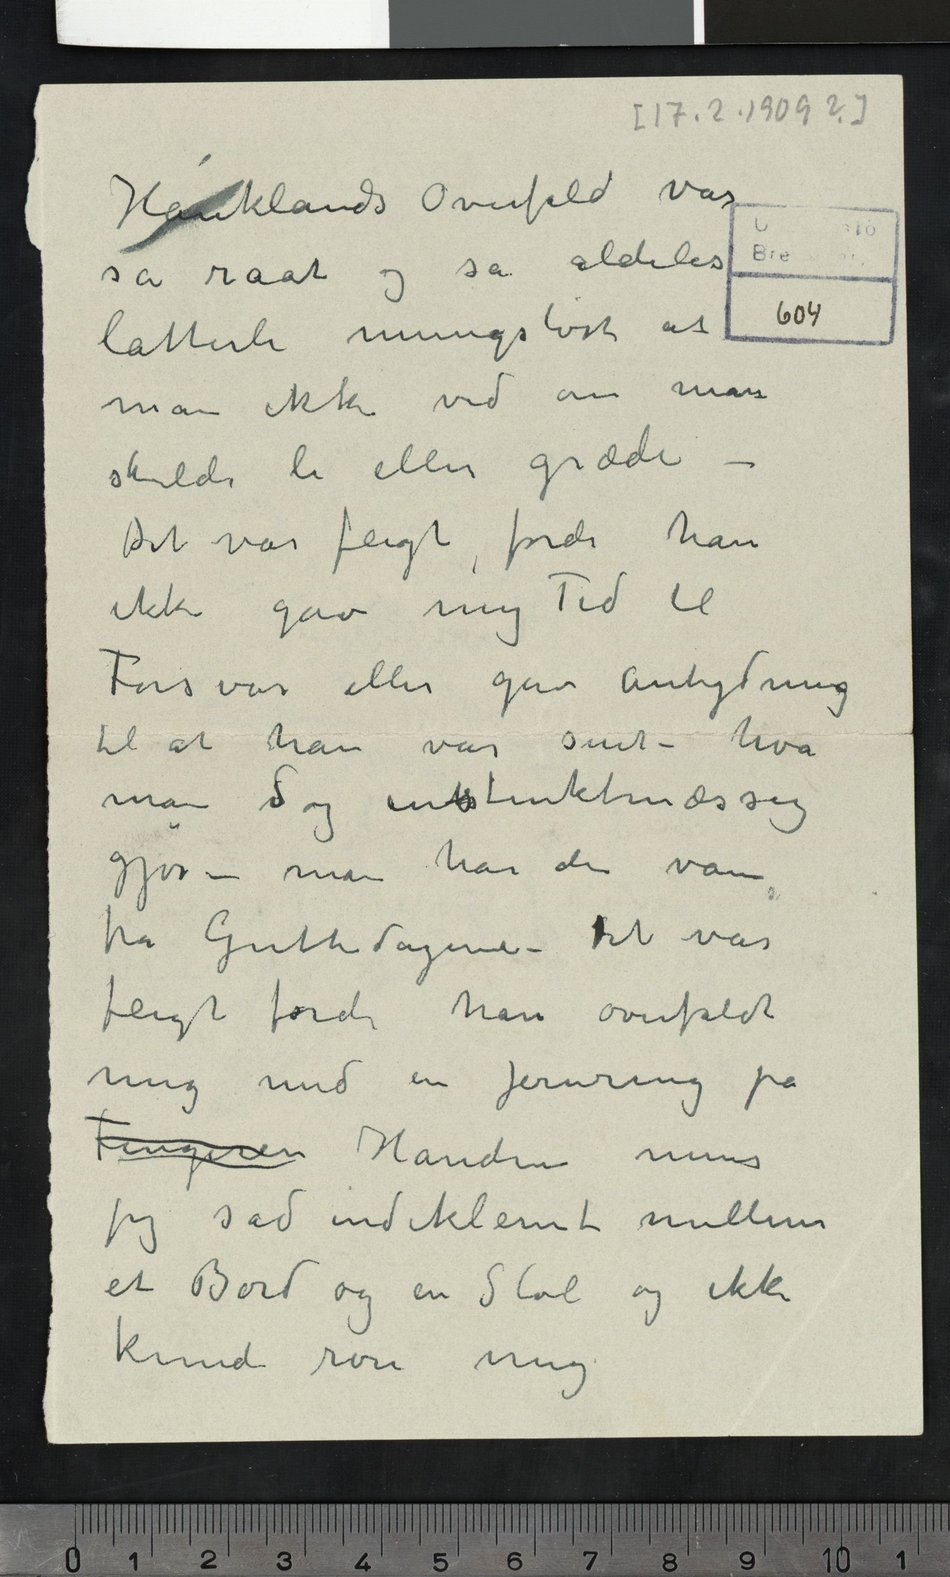 [17.2.1909 ?]
Hauklands Overfald var
så raat og så aldeles
latterli meningsløst at
man ikke ved om man
skulde le eller græde –
Det var feigt, fordi han
ikke gav mig Tid til
Forsvar eller gav Antydning
til at han var sint – hva
man dog instinktmæssig
gjør – man har den vane
fra Guttedagene – Det var
feigt fordi han overfaldt
mig med en Jernring på
Fingeren Hånden mens
jeg sad indeklemt mellem
et Bord og en Stol og ikke
kunde røre mig
604
0 1 2 3 4 5 6 7 8 9 10 1